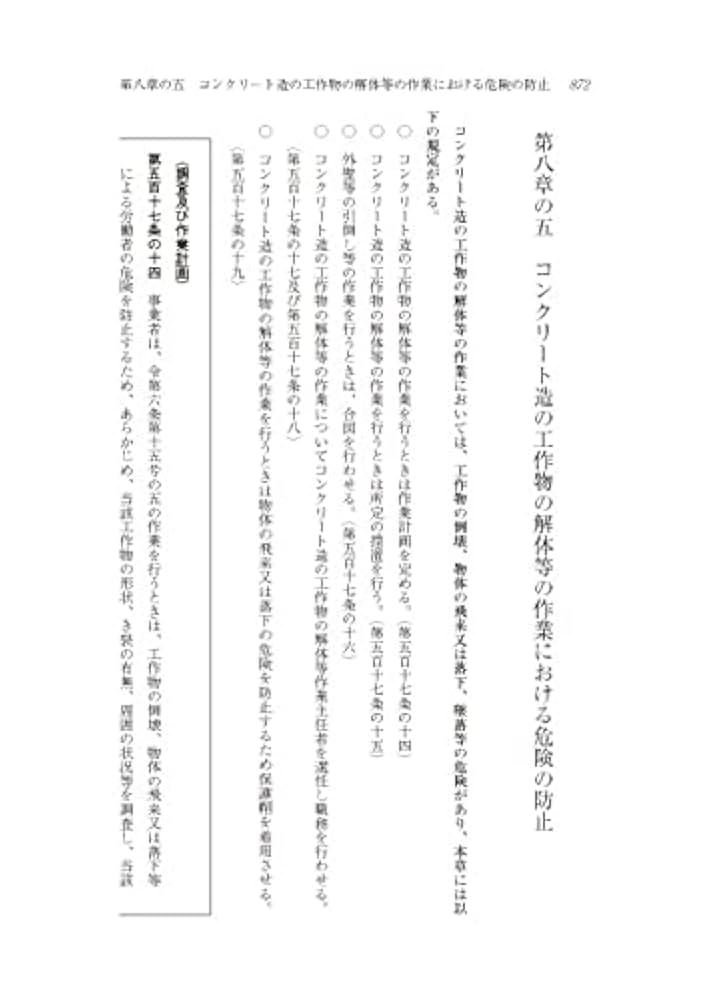 第八章の五　コンクリート造の工作物の解体等の作業における危険の防止　872
第八章の五　コンクリート造の工作物の解体等の作業における危険の防止
コンクリート造の工作物の解体等の作業においては、工作物の倒壊、物体の飛来又は落下、墜落等の危険があり、本章には以
下の規定がある。
○　コンクリート造の工作物の解体等の作業を行うときは作業計画を定める。（第五百十七条の十四）
○　コンクリート造の工作物の解体等の作業を行うときは所定の措置を行う。（第五百十七条の十五）
○　外壁等の引倒し等の作業を行うときは、合図を行わせる。（第五百十七条の十六）
○　コンクリート造の工作物の解体等の作業についてコンクリート造の工作物の解体等作業主任者を選任し職務を行わせる。
（第五百十七条の十七及び第五百十七条の十八）
○　コンクリート造の工作物の解体等の作業を行うときは物体の飛来又は落下の危険を防止するため保護帽を着用させる。
（第五百十七条の十九）
（調査及び作業計画）
第五百十七条の十四　事業者は、令第六条第十五号の五の作業を行うときは、工作物の倒壊、物体の飛来又は落下等
による労働者の危険を防止するため、あらかじめ、当該工作物の形状、き裂の有無、周囲の状況等を調査し、当該